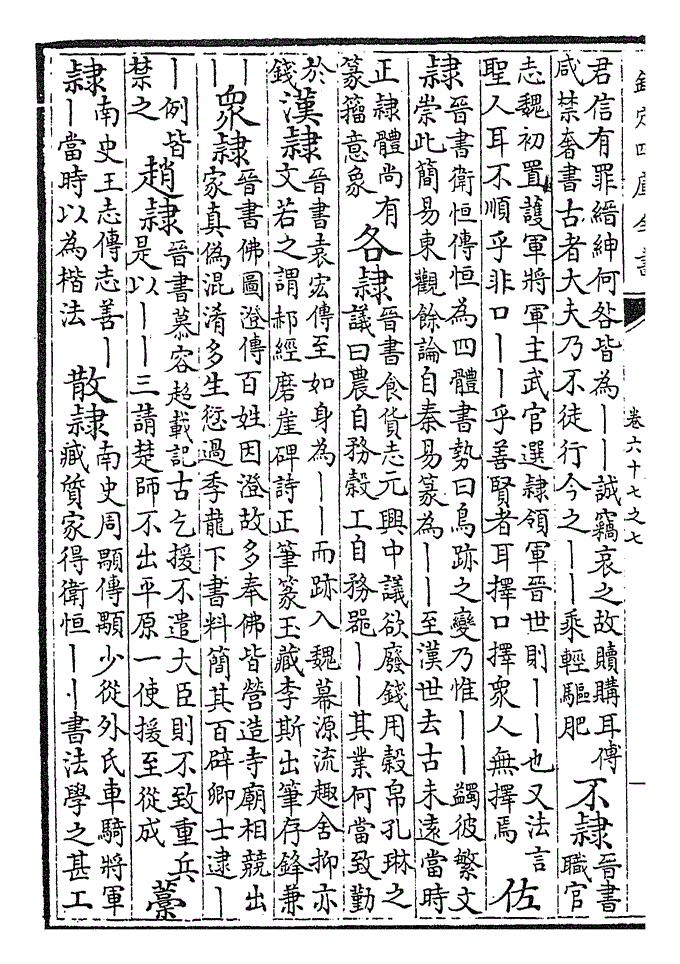 欽定四庫全書
卷六十七之七
君信有罪縉紳何咎皆為丨丨誠竊哀之故贖購耳傳
咸禁奢書古者大夫乃不徒行今之丨丨乘輕驅肥
不隷
晉書
職官
志魏初置護軍將軍主武官選隷領軍晉世則丨丨也又法言
聖人耳不順乎非口丨丨乎善賢者耳擇口擇衆人無擇焉
佐
隷
晉書衛恒傳恒為四體書勢曰鳥跡之變乃惟丨丨蠲彼繁文
崇此簡易東觀餘論自秦易篆為丨丨至漢世去古未遠當時
正隷體尚有
篆籀意象
各隷
晉書食貨志元興中議欲廢錢用穀帛孔琳之
議曰農自務穀工自務器丨丨其業何當致勤
於
錢
漢隷
晉書袁宏傳至如身為丨丨而跡入魏幕源流趣舍抑亦
文若之謂郝經磨崖碑詩正筆篆玉藏李斯出筆存鋒兼
丨
丨
衆隷
晉書佛圖澄傳百姓因澄故多奉佛皆營造寺廟相競出
家真偽混淆多生愆過季龍下書料簡其百辟卿士逮丨
丨例皆
禁之
趙隷
晉書慕容超載記古乞援不遣大臣則不致重兵
是以丨丨三請楚師不出平原一使援至從成
藁
隷
南史王志傳志善丨
丨當時以為楷法
散隷
南史周顒傳顒少從外氏車騎將軍
臧質家得衛恒丨丨書法學之甚工